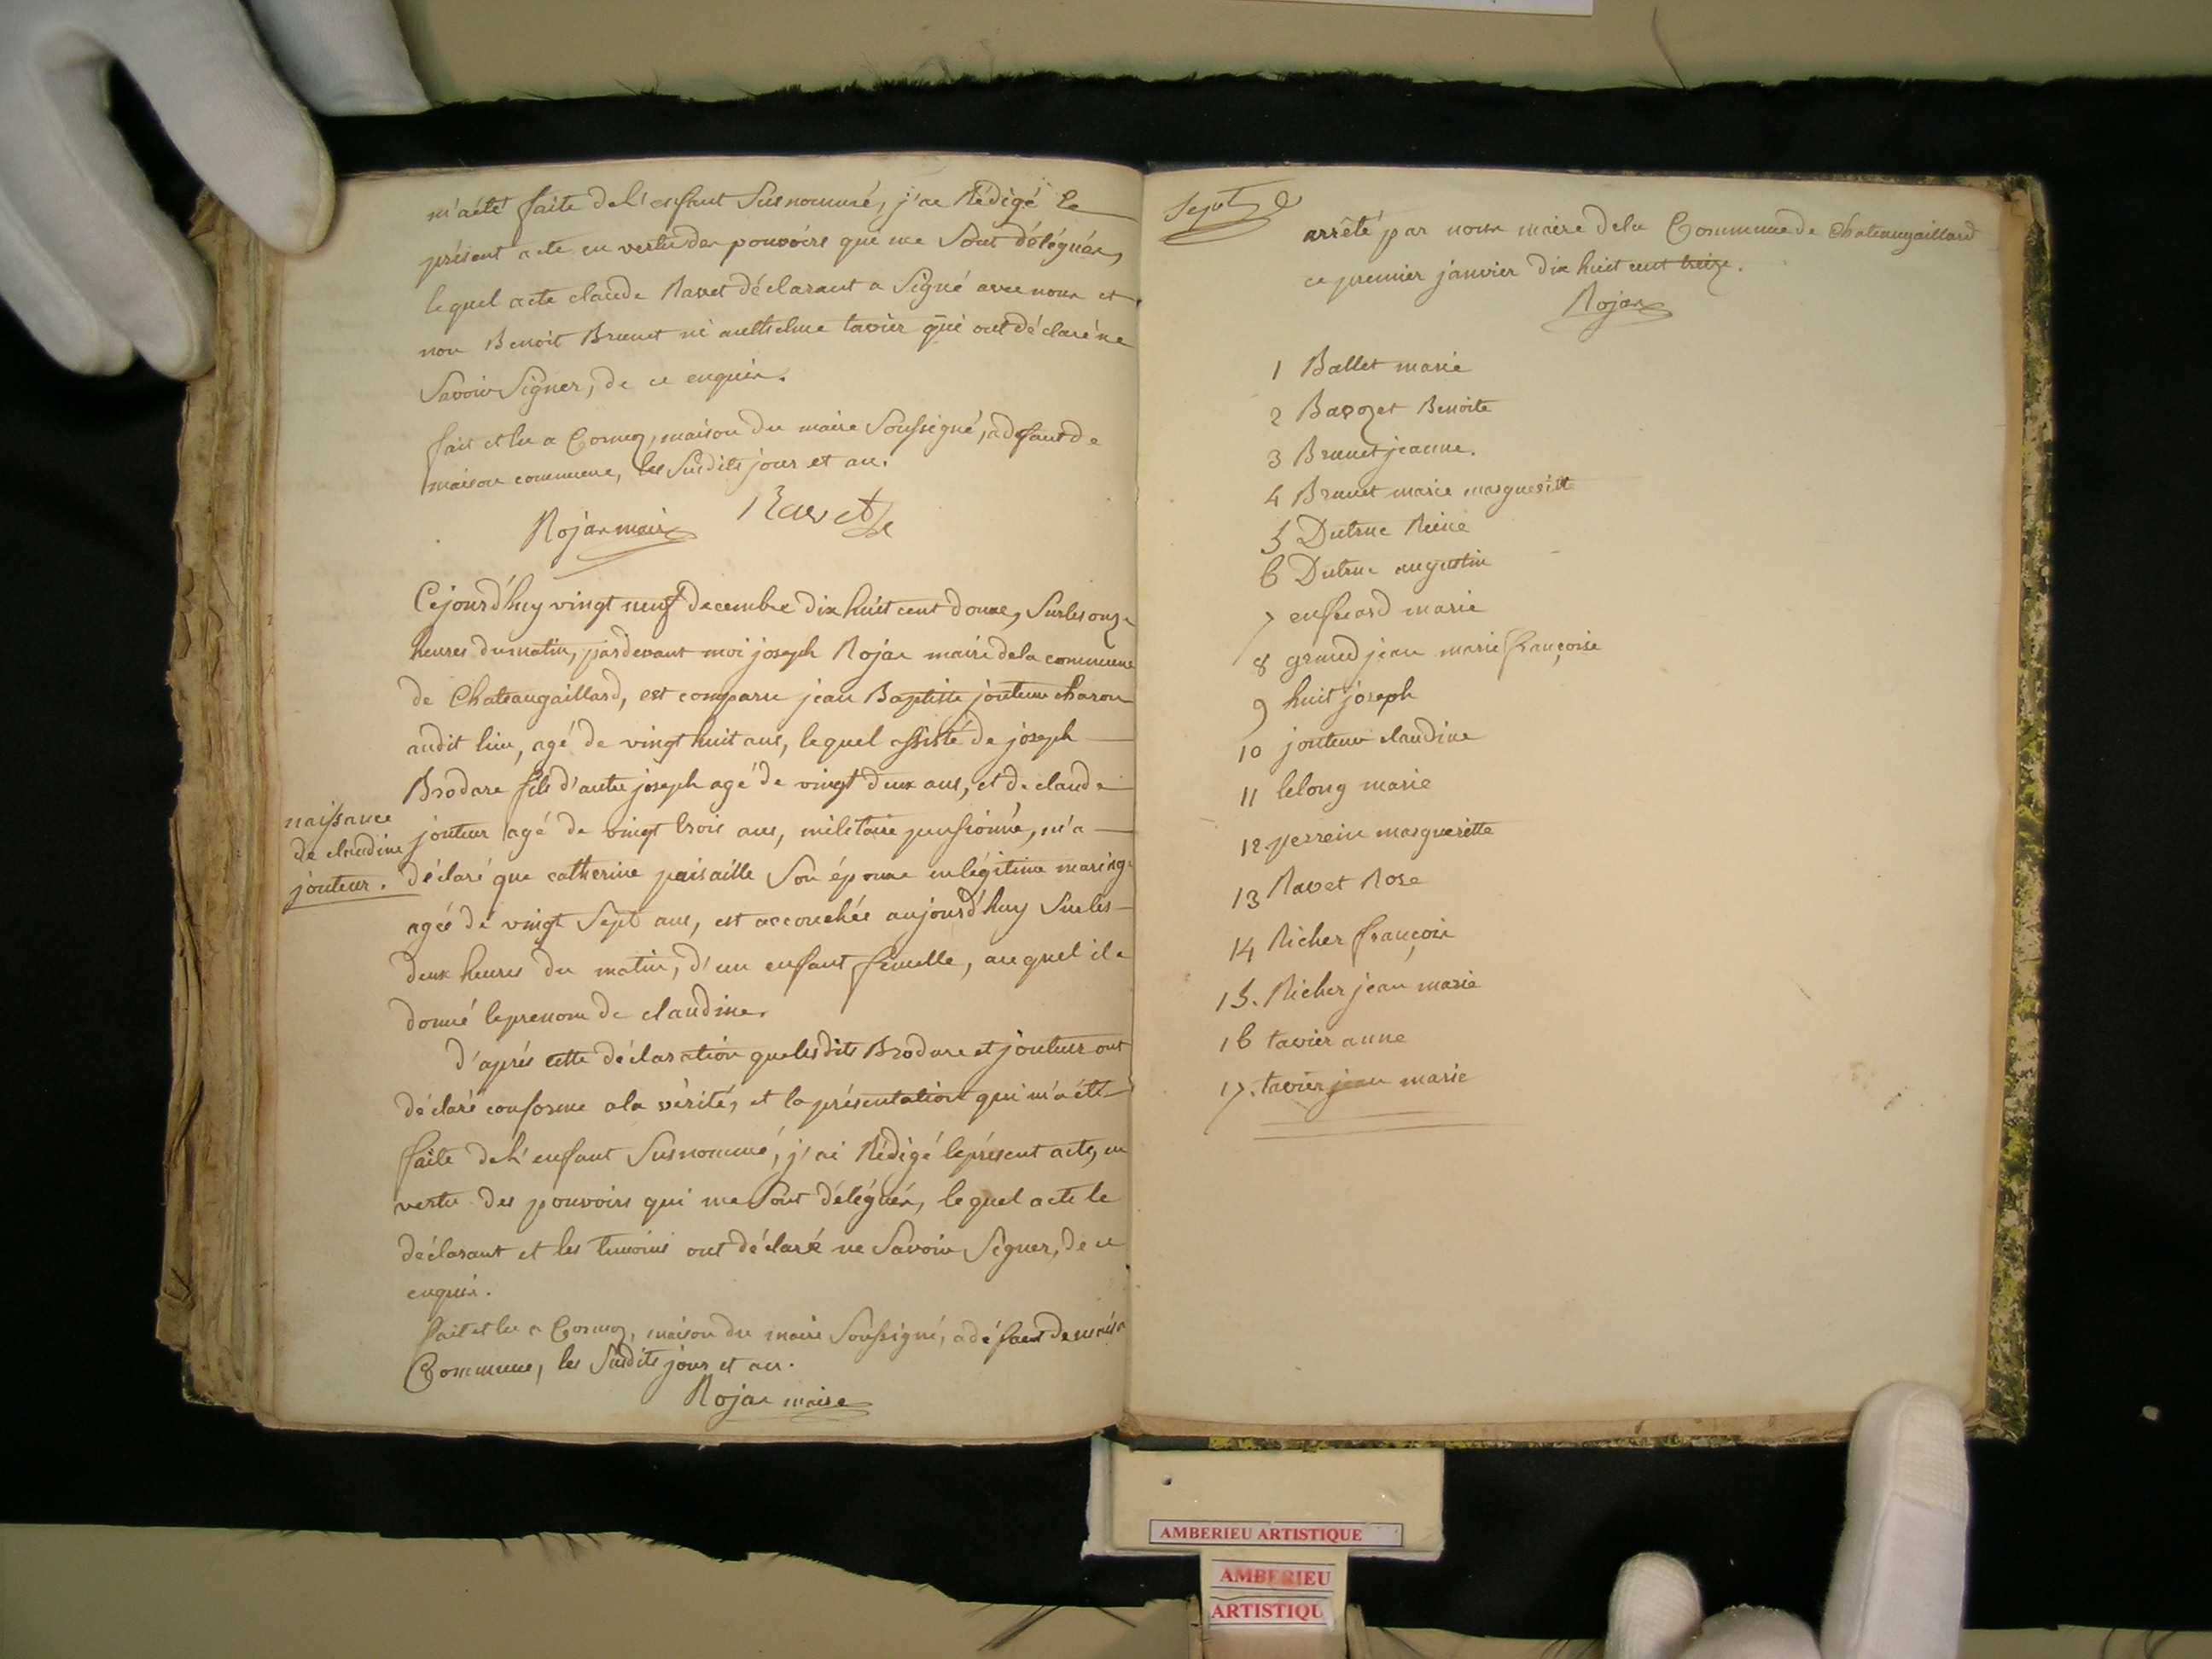 m'a été faite de l'enfant susnommé, j'ai Rédigé le
présent acte en vertu des pouvoirs qui me sont délégués,
lequel acte claude Ravet déclarant a signé avec nous et
non Benoit Brunet ni anthelme tavier qui ont déclaré ne
Savoir Signer, de ce enquis.
fait et lu a Cormoz, maison du maire Soussigné, a defaut de
maison commune, les Susdits jour et an.
Rojas maire Ravet
Cejourd'huy vingt neuf decembre dix huit cent douze, Sur les onze
heures du matin, pardevant moi joseph Rojas maire de la commune
de Chateaugaillard, est comparu jean Baptiste jouteur charon
audit lieu, agé de vingt huit ans, lequel assisté de joseph
Brodare fils d'autre joseph agé de vingt deux ans, et de claude
naissance
de claudine
jouteur.
jouteur agé de vingt trois ans, militaire pensionné, m'a
déclaré que catherine paisaille Son épouse en légitime mariage
agée de vingt Sept ans, est accouchée aujourd'huy Sur les
deux heures du matin, d'un enfant femelle, auquel il a
donné le prenom de claudine.
d'après cette déclaration que lesdits Brodare et jouteur ont
déclaré conforme a la vérité, et la présentation qui m'a été
faite de l'enfant Susnommé, j'ai Rédigé le présent acte, en
vertu des pouvoirs qui me Sont délégués, lequel acte le
déclarant et les temoins ont déclaré ne Savoir Signer, de ce
enquis.
fait et lu a Cormoz, maison du maire Soussigné, a défaut de maison
Commune, les Susdits jour et an.
Rojas maire
Sept
arrêté par nous maire de la Commune de Chateaugaillard
ce premier janvier dix huit cent treize.
Rojas
1 Ballet marie
2 Bavozet Benoite
3 Brunet jeanne.
4 Brunet marie marguerite
5 Dutruc Reine
6 Dutruc augustin
7 marie
8 grand jean marie françoise
9 huit joseph
10 jouteur claudine
11 lelong marie
12 perrein marguerite
13 Ravet Rose
14 Richer françois
15. Richer jean marie
16 tavier anne
17. tavier jean marie
AMBERIEU ARTISTIQUE
AMBERIEU
ARTISTIQU